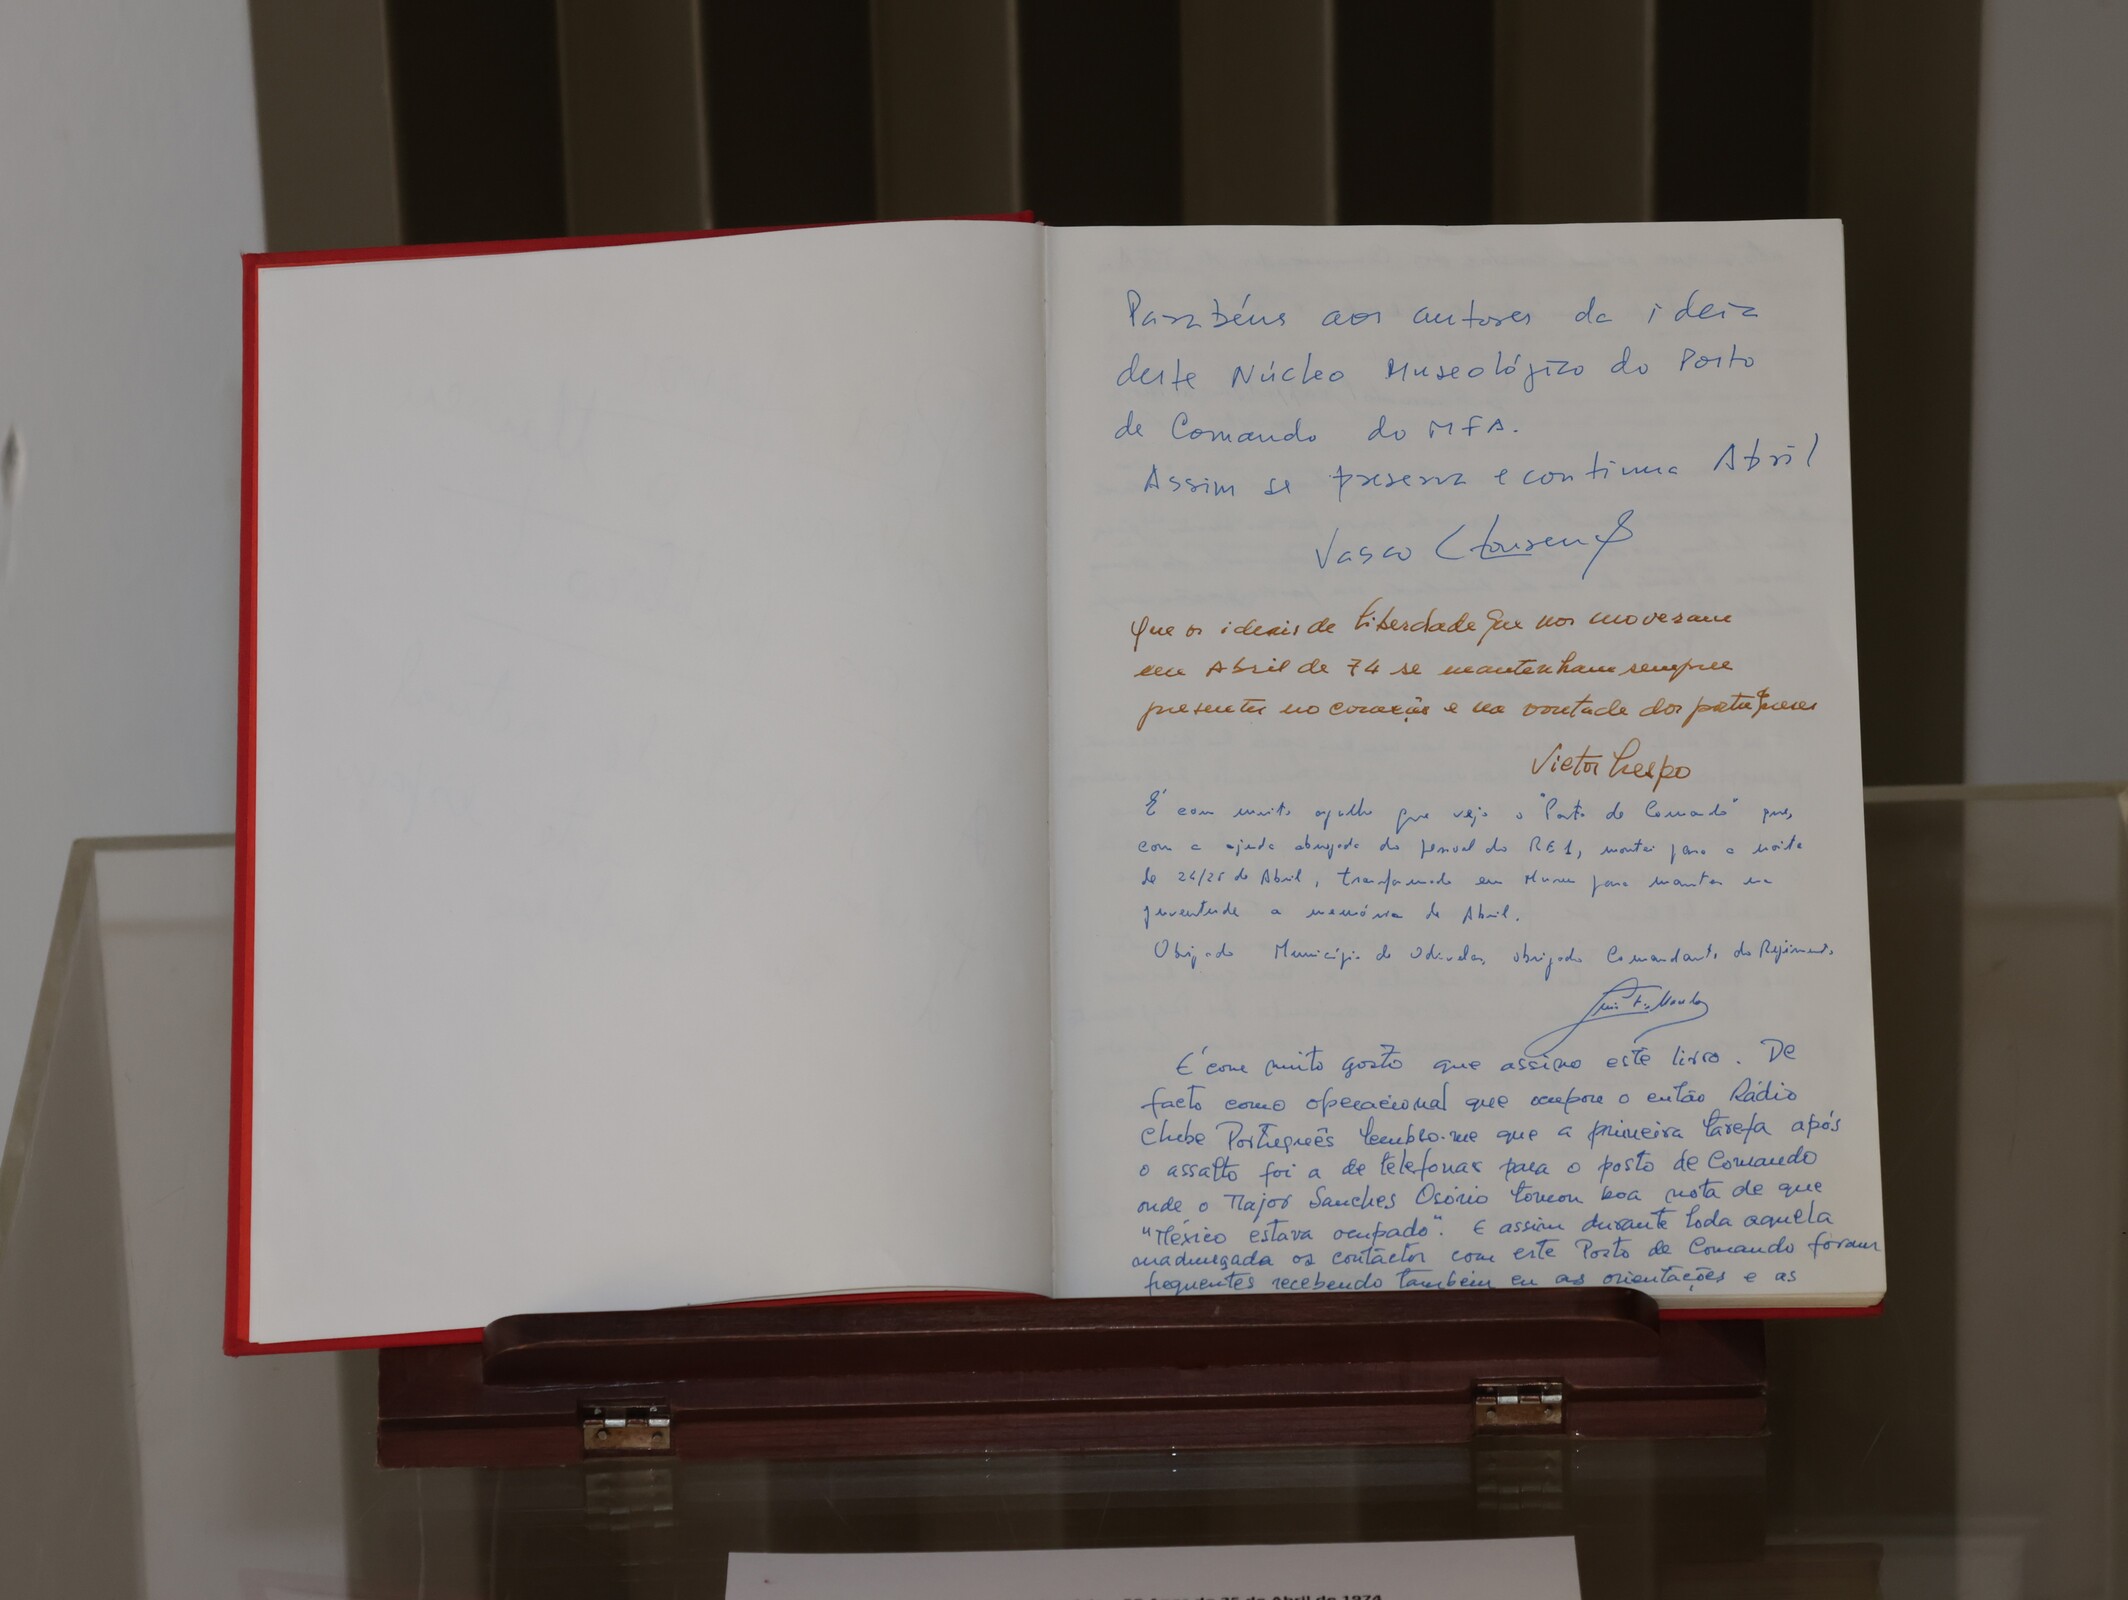 Parabéns aos autores da ideia
deste Núcleo Museológico do Posto
de Comando do MFA.
Assim se preserva e continua Abril
Vasco Lourenço
Que os ideais de Liberdade que nos moveram
em Abril de 74 se mantenham sempre
presentes no coração e na vontade dos portugueses
Victor Crespo
É com muito orgulho que vejo o "Posto de Comando" que,
com a ajuda abnegada do pessoal do RE1, montei para a noite
de 24/25 de Abril, transformado em Museu para manter na
juventude a memória de Abril.
Obrigado Município de Odivelas, obrigado Comandante do Regimento
É com muito gosto que assino este livro. De
facto como operacional que ocupou o então Rádio
Clube Português lembro-me que a primeira tarefa após
o assalto foi a de telefonar para o posto de Comando
onde o Major Sanches Osório tomou boa nota de que
"México estava ocupado". E assim durante toda aquela
madrugada os contactos com este Posto de Comando foram
frequentes recebendo também eu as orientações e as
25 de Abril de 1974